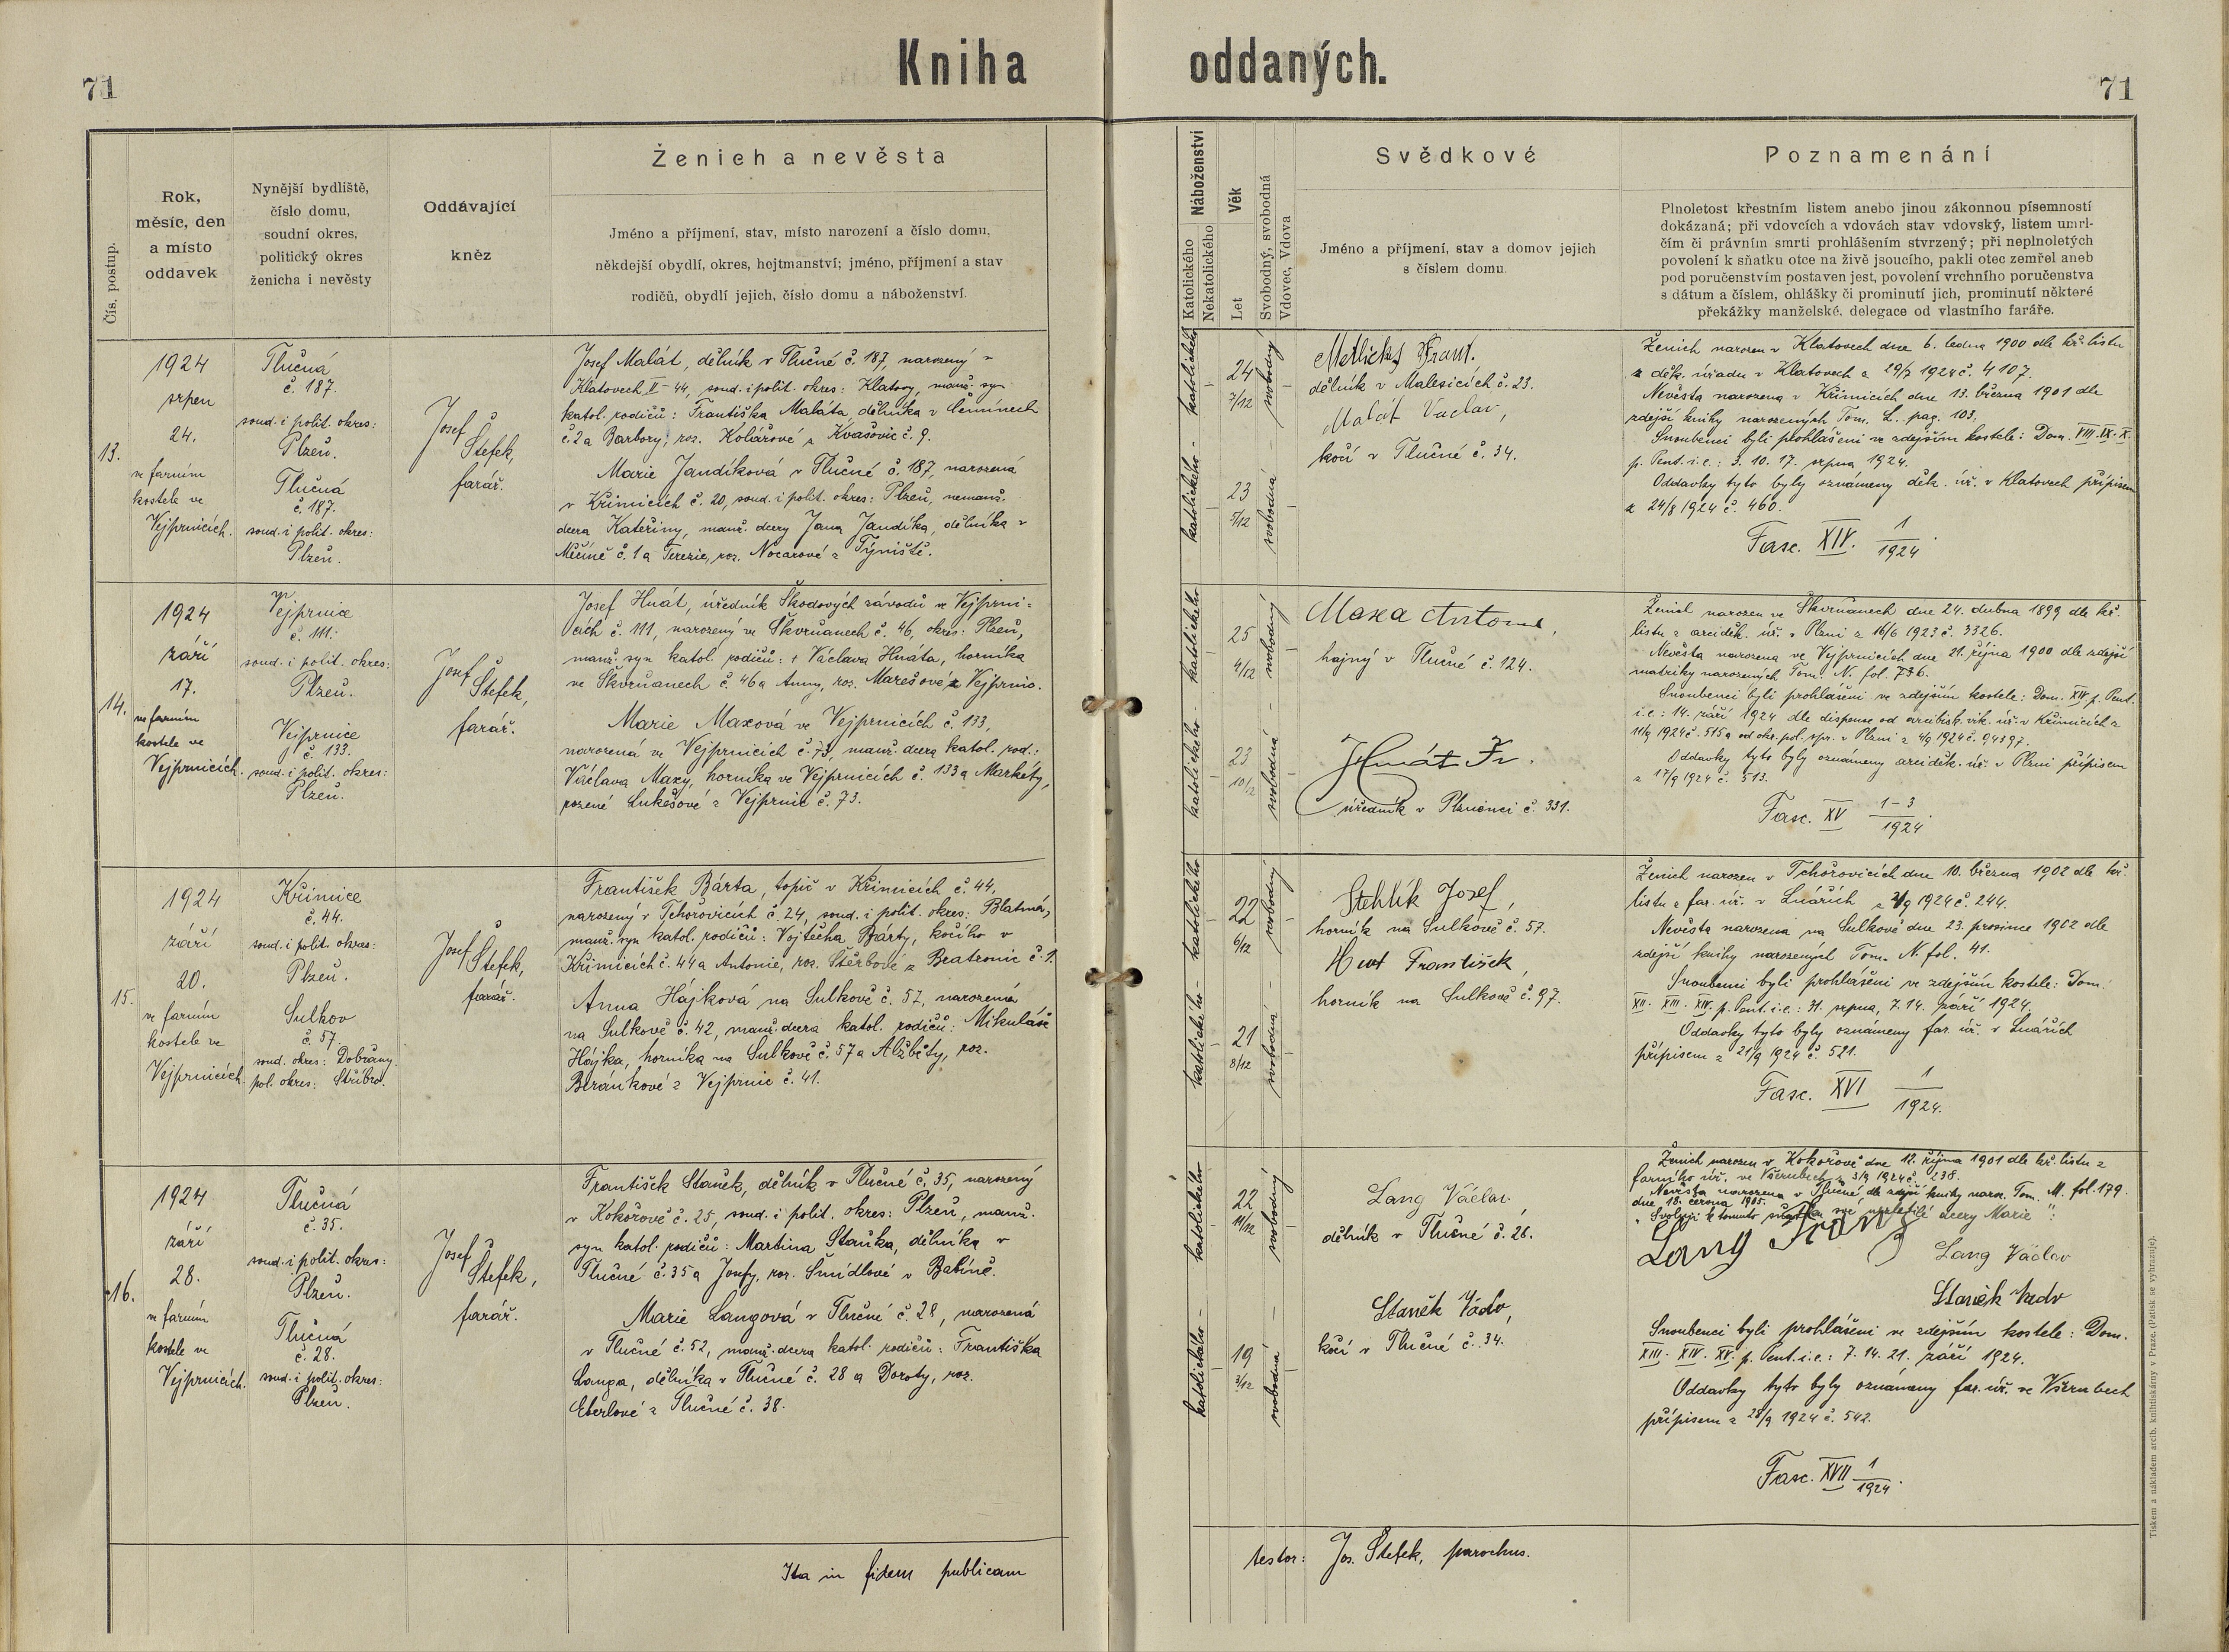 71
Kniha oddaných.
71
Čís. postup.
Rok,
měsíc, den
a místo
oddavek
Nynější bydliště,
číslo domu,
soudní okres,
politický okres
ženicha i nevěsty
Oddávající
kněz
Ženich a nevěsta
Jméno a příjmení, stav, místo narození a číslo domu,
někdejší obydlí, okres, hejtmanství; jméno, příjmení a stav
rodičů, obydlí jejich, číslo domu a náboženství.
Náboženství
Katolického
Nekatolického
Věk
Let
Svobodný, svobodná
Vdovec, Vdova
Svědkové
Jméno a příjmení, stav a domov jejich
s číslem domu.
Poznamenání
Plnoletost křestním listem anebo jinou zákonnou písemností
dokázaná; při vdovcích a vdovách stav vdovský, listem umrl-
čím či právním smrti prohlášením stvrzený; při neplnoletých
povolení k sňatku otce na živě jsoucího, pakli otec zemřel aneb
pod poručenstvím postaven jest, povolení vrchního poručenstva
s dátum a číslem, ohlášky či prominutí jich, prominutí některé
překážky manželské, delegace od vlastního faráře.
13.
1924
srpen
24.
ve farním
kostele ve
Vejprnicích.
Tlučná
č. 187.
soud. i polit. okres:
Plzeň.
Tlučná
č. 187.
soud. i polit. okres:
Plzeň.
Josef
Štefek,
farář.
Josef Malát, dělník v Tlučné č. 187, narozený v
Klatovech II-44, soud. i polit. okres: Klatovy, manž. syn
katol. rodičů: Františka Maláta, dělníka v
č. 2 a Barbory, roz. Kolářové z Kvašovic č. 9.
Marie Jandíková v Tlučné č. 187, narozená
v Křimicích č. 20, soud. i polit. okres: Plzeň, nemanž.
dcera Kateřiny, manž. dcery Jana Jandíka, dělníka v
Měčíně č. 1 a Terezie, roz. Nocarové z Týniště.
katolického
katolického
24
7/12
23
5/12
svobodný
svobodná
Metlický Frant.
dělník v Malesicích č. 23.
Malát Václav,
kočí v Tlučné č. 34.
Ženich narozen v Klatovech dne 6. ledna 1900 dle kř. listu
z děk. úřadu v Klatovech z 29/7 1924 č. 4107.
Nevěsta narozena v Křimicích dne 13. března 1901 dle
zdejší knihy narozených Tom. L. pag. 103.
Snoubenci byli prohlášeni ve zdejším kostele: Dom. VIII. IX. X.
p. Pent. i. e.: 3. 10. 17. srpna 1924.
Oddavky tyto byly oznámeny děk. úř. v Klatovech přípisem
z 24/8 1924 č. 460.
Fasc. XIV. 1/1924.
14.
1924
září
17.
ve farním
kostele ve
Vejprnicích.
Vejprnice
č. 111.
soud. i polit. okres:
Plzeň.
Vejprnice
č. 133.
soud. i polit. okres:
Plzeň.
Josef
Štefek,
farář.
Josef Hnát, úředník Škodových závodů ve Vejprni=
cích č. 111, narozený ve Škvrňanech č. 46, okres: Plzeň,
manž. syn katol. rodičů: + Václava Hnáta, horníka
ve Škvrňanech č. 46 a Anny, roz. Marešové z Vejprnic.
Marie Maxová ve Vejprnicích č. 133,
narozená ve Vejprnicích č. 73, manž. dcera katol. rod.:
Václava Maxy, horníka ve Vejprnicích č. 133 a Markéty,
rozené Lukešové z Vejprnic č. 73.
katolického
katolického
25
4/12
23
10/12
svobodný
svobodná
Maxa Antonín,
hajný v Tlučné č. 124.
Hnát Fr.
úředník v Plzni č. 331.
Ženich narozen ve Škvrňanech dne 24. dubna 1899 dle kř.
listu z arciděk. úř. v Plzni z 16/6 1923 č. 3326.
Nevěsta narozena ve Vejprnicích dne 21. října 1900 dle zdejší
matriky narozených Tom. N. fol. 736.
Snoubenci byli prohlášeni ve zdejším kostele: Dom. XIV p. Pent.
i. e.: 14. září 1924 dle dispense od arcibisk. vik. úř. v Křimicích z
11/9 1924 č. 515 a od okr. pol. spr. v Plzni z 4/9 1924 č. 94397.
Oddavky tyto byly oznámeny arciděk. úř. v Plzni přípisem
z 17/9 1924 č. 513.
Fasc. XV 1-3/1924.
15.
1924
září
20.
ve farním
kostele ve
Vejprnicích.
Křimice
č. 44.
soud. i polit. okres:
Plzeň.
Sulkov
č. 57.
soud. okres: Dobřany.
pol. okres: Stříbro.
Josef
Štefek,
farář.
František Bárta, topič v Křimicích č. 44,
narozený v Tchořovicích č. 24, soud. i polit. okres: Blatná,
manž. syn katol. rodičů: Vojtěcha Bárty, kočího v
Křimicích č. 44 a Antonie, roz. Štěrbové z Bratronic č. 1.
Anna Hájková na Sulkově č. 57, narozená
na Sulkově č. 42, manž. dcera katol. rodičů: Mikuláše
Hájka, horníka na Sulkově č. 57 a Alžběty, roz.
Beránkové z Vejprnic č. 41.
katolického
katolického
22
6/12
21
8/12
svobodný
svobodná
Stehlík Josef,
horník na Sulkově č. 57.
František,
horník na Sulkově č. 97.
Ženich narozen v Tchořovicích dne 10. března 1902 dle kř.
listu z far. úř. v Lnářích z 2/9 1924 č. 244.
Nevěsta narozena na Sulkově dne 23. prosince 1902 dle
zdejší knihy narozených Tom. N. fol. 41.
Snoubenci byli prohlášeni ve zdejším kostele: Dom.
XII. XIII. XIV. p. Pent. i. e.: 31. srpna, 7. 14. září 1924.
Oddavky tyto byly oznámeny far. úř. v Lnářích
přípisem z 21/9 1924 č. 521.
Fasc. XVI 1/1924.
16.
1924
září
28.
ve farním
kostele ve
Vejprnicích.
Tlučná
č. 35.
soud. i polit. okres:
Plzeň.
Tlučná
č. 28.
soud. i polit. okres:
Plzeň.
Josef
Štefek,
farář.
František Staněk, dělník v Tlučné č. 35, narozený
v Kokořově č. 25, soud. i polit. okres: Plzeň, manž.
syn katol. rodičů: Martina Staňka, dělníka v
Tlučné č. 35 a Josefy, roz. Šmídlové v Babině.
Marie Langová v Tlučné č. 28, narozená
v Tlučné č. 52, manž. dcera katol. rodičů: Františka
Langa, dělníka v Tlučné č. 28 a Doroty, roz.
Eberlové z Tlučné č. 38.
katolického
katolického
22
11/12
19
3/12
svobodný
svobodná
Lang Václav
dělník v Tlučné č. 26.
Staněk Václv,
kočí v Tlučné č. 34.
Ženich narozen v Kokořově dne 12. října 1901 dle kř. listu z
farního úř. ve Všerubech z 3/9 1924 č. 238.
Nevěsta narozena v Tlučné, dle zdejší knihy naroz. Tom. M. fol. 179
dne 18. června 1905.
"Svoluji k tomuto sňatku své nezletilé dcery Marie":
Lang Franz
Lang Václav
Staněk Václv
Snoubenci byli prohlášeni ve zdejším kostele: Dom.
XIII. XIV. XV. p. Pent. i. e.: 7. 14. 21. září 1924.
Oddavky tyto byly oznámeny far. úř. ve Všerubech
přípisem z 28/9 1924 č. 542.
Fasc. XVII 1/1924.
Ita in fidem publicam
testor: Jos. Štefek, parochus.
Tiskem a nákladem arcib. knihtiskárny v Praze. (Patisk se vyhrazuje).